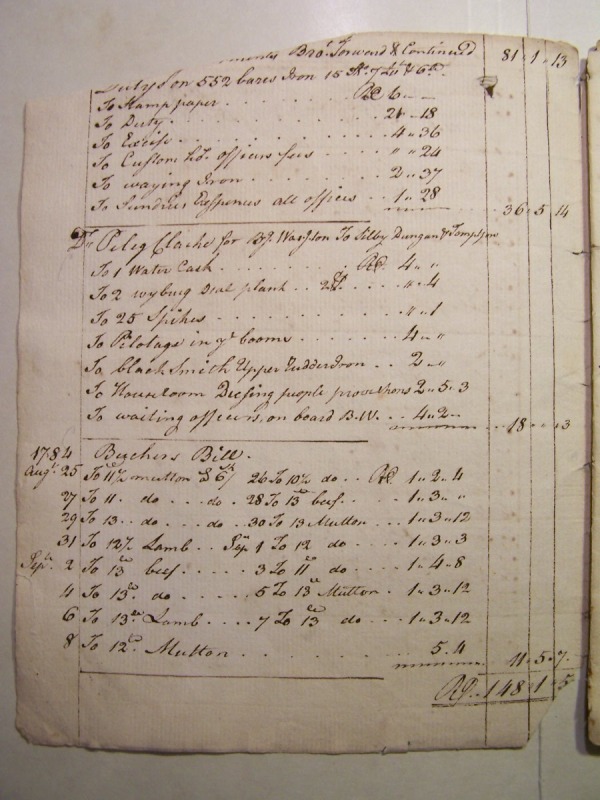 Bro.t Forward & Continued 81 " 1 " 13
on 552 bares Iron 15
To Stamp paper . . . . . . 6 " —
To Duty . . . . . . . . 21 " 18
To Excise . . . . . . . . 4 " 36
To Custom officers fees . . . . " " 24
To waying Iron . . . . . . 2 " 37
To Sundries Expences all offices . . 1 " 28
36 " 5 " 14
Peleg Clarke for To Selby Dungan & Tompson
To 1 Water Cask . . . . . . 4 " "
To 2 wyburg Deal plank . . " " 4
To 25 Spikes . . . . . . . " " 1
To Pilotage in ye booms . . . . . 4 " "
To black Smith Upper Rudder . . 2 " "
To House room Diesing people provisions 2 " 5 " 3
To waiting officers on board B.W. . . 4 " 2 "
18 " " 13
1784 Buchers Bill.
Aug.t 25 To 11½ mutton 26 To 10½ do . . 1 " 2 " 4
27 To 11 do . . . do . 28 To 13 beef . . . 1 " 3 " "
29 To 13 . . do . . . do . . 30 To 13 Mutton . . . 1 " 3 " 12
31 To 12½ Lamb . . . Sep. 1 To 12 do . . . . 1 " 3 " 3
Sep. 2 To 13 beef . . . . 3 To 11 do . . . 1 " 4 " 8
4 To 15 do . . . . . 5 To 13 Mutton . 1 " 3 " 12
6 To 13 Lamb . . . . 7 To 13 do . . . 1 " 3 " 12
8 To 12 Mutton . . . . . . . . . . 5 . 4
11 " 5 " 7
148 " 1 " 5